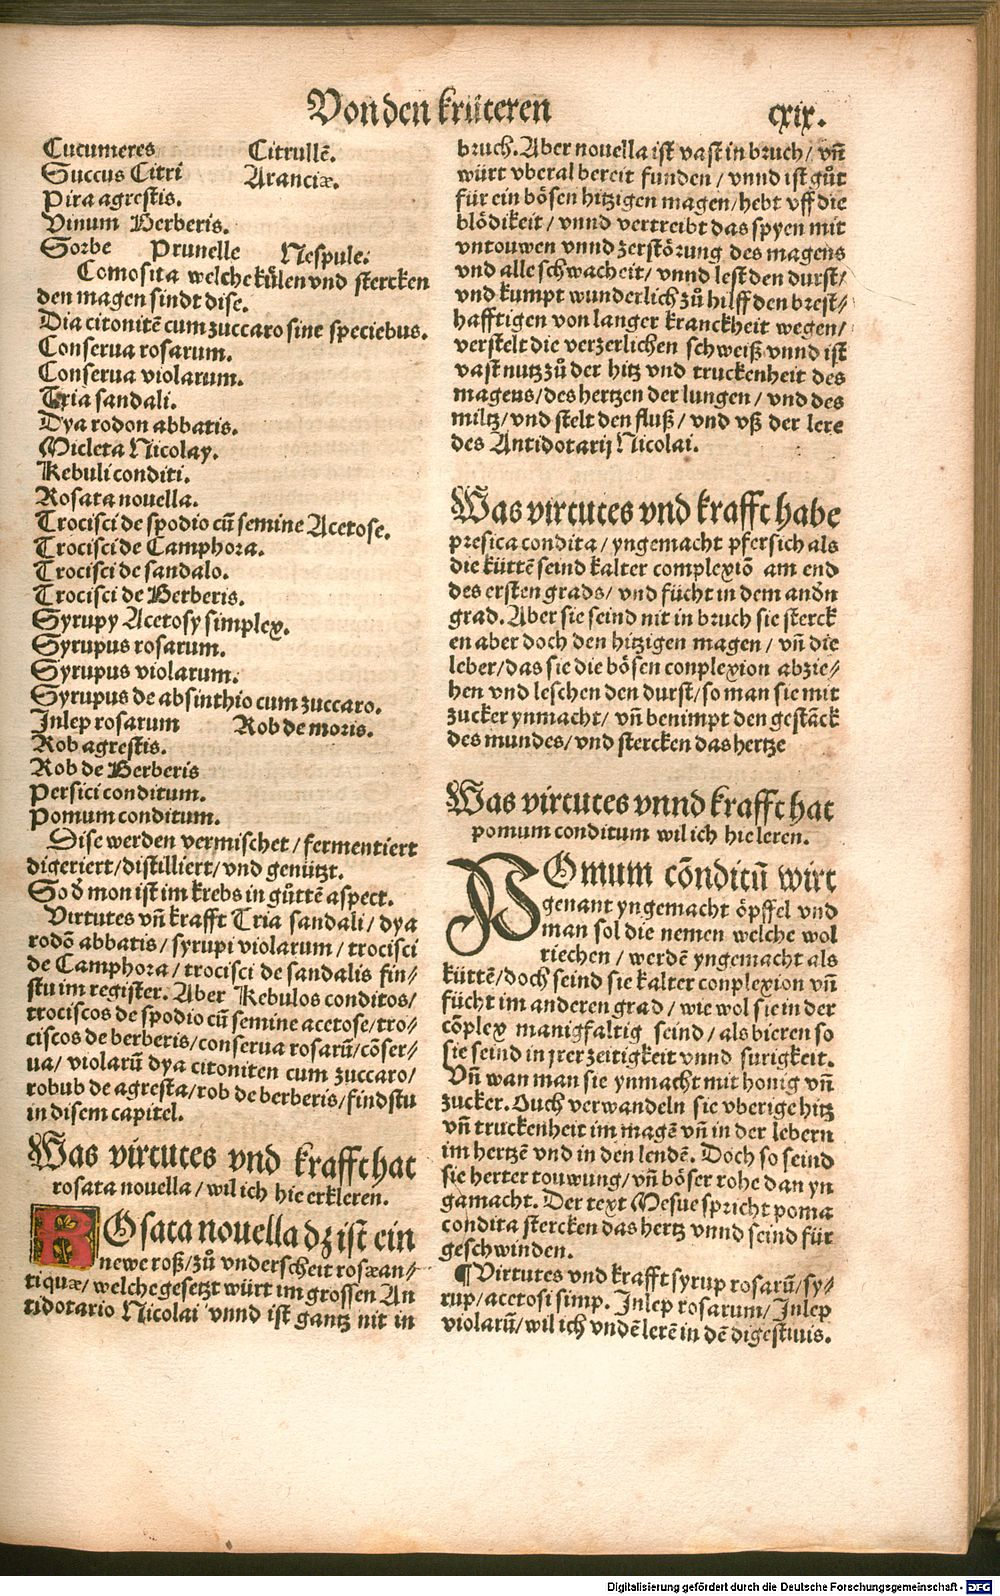 Von den krüteren
cxix.
Cucumeres Citrullē.
Succus Citri Aranciæ.
Pira agrestis.
Vinum Berberis.
Sorbe Prunelle Nespule.
Comosita welche külen vnd stercken
den magen sindt dise.
Dia citonitē cum zuccaro sine speciebus.
Conserua rosarum.
Conserua violarum.
Tria sandali.
Dya rodon abbatis.
Micleta Nicolay.
Kebuli conditi.
Rosata nouella.
Trocisci de spodio cū semine Acetose.
Trocisci de Camphora.
Trocisci de sandalo.
Trocisci de Berberis.
Syrupy Acetosy simplex.
Syrupus rosarum.
Syrupus violarum.
Syrupus de absinthio cum zuccaro.
Inlep rosarum Rob de moris.
Rob agrestis.
Rob de Berberis
Persici conditum.
Pomum conditum.
Dise werden vermischet / fermentiert
digeriert / distilliert / vnd genützt.
So ď mon ist im krebs in gůttē aspect.
Virtutes vñ krafft Tria sandali / dya
rodō abbatis / syrupi violarum / trocisci
de Camphora / trocisci de sandalis fin-
stu im register. Aber Kebulos conditos /
trociscos de spodio cū semine acetose / tro-
ciscos de berberis / conserua rosarū / cōser-
ua / violarū dya citoniten cum zuccaro /
robub de agresta / rob de berberis / findstu
in disem capitel.
Was virtutes vnd krafft hat
rosata nouella / wil ich hie erkleren.
ROsata nouella dz ist ein
newe roß / zů vnderscheit rosæ an-
tiquæ / welche gesetzt würt im grossen An
tidotario Nicolai vnnd ist gantz nit in
bruch. Aber nouella ist vast in bruch / vñ
würt vberal bereit funden / vnnd ist gůt
für ein bösen hitzigen magen / hebt vff die
blödikeit / vnnd vertreibt das spyen mit
vntouwen vnnd zerstörung des magens
vnd alle schwacheit / vnnd lest den durst /
vnd kumpt wunderlich zů hilff den brest-
hafftigen von langer kranckheit wegen /
verstelt die verzerlichen schweiß vnnd ist
vast nutz zů der hitz vnd truckenheit des
magens / des hertzen der lungen / vnd des
miltz / vnd stelt den fluß / vnd vß der lere
des Antidotarij Nicolai.
Was virtutes vnd krafft habe
presica condita / yngemacht pfersich als
die küttē seind kalter complexiō am end
des ersten grads / vnd fücht in dem andn̄
grad. Aber sie seind nit in bruch sie sterck
en aber doch den hitzigen magen / vñ die
leber / das sie die bösen conplexion abzie-
hen vnd leschen den durst / so man sie mit
zucker ynmacht / vñ benimpt den gestāck
des mundes / vnd stercken das hertze
Was virtutes vnnd krafft hat
pomum conditum wil ich hie leren.
POmum cōnditū wirt
genant yngemacht öpffel vnd
man sol die nemen welche wol
riechen / werdē yngemacht als
küttē / doch seind sie kalter conplexion vñ
fücht im anderen grad / wie wol sie in der
cōplex manigfaltig seind / als bieren so
sie seind in jrer zeitigkeit vnnd surigkeit.
Vñ wan man sie ynmacht mit honig vñ
zucker. Ouch verwandeln sie vberige hitz
vñ truckenheit im magē vñ in der lebern
im hertzē vnd in den lendē. Doch so seind
sie herter touwung / vñ böser rohe dan yn
gamacht. Der text Mesue spricht poma
condita stercken das hertz vnnd seind für
geschwinden.
¶ Virtutes vnd krafft syrup rosarū / sy-
rup / acetosi simp. Inlep rosarum / Inlep
violarū / wil ich vndē lerē in dē digestiuis.
Digitalisierung gefördert durch die Deutsche Forschungsgemeinschaft - DFG